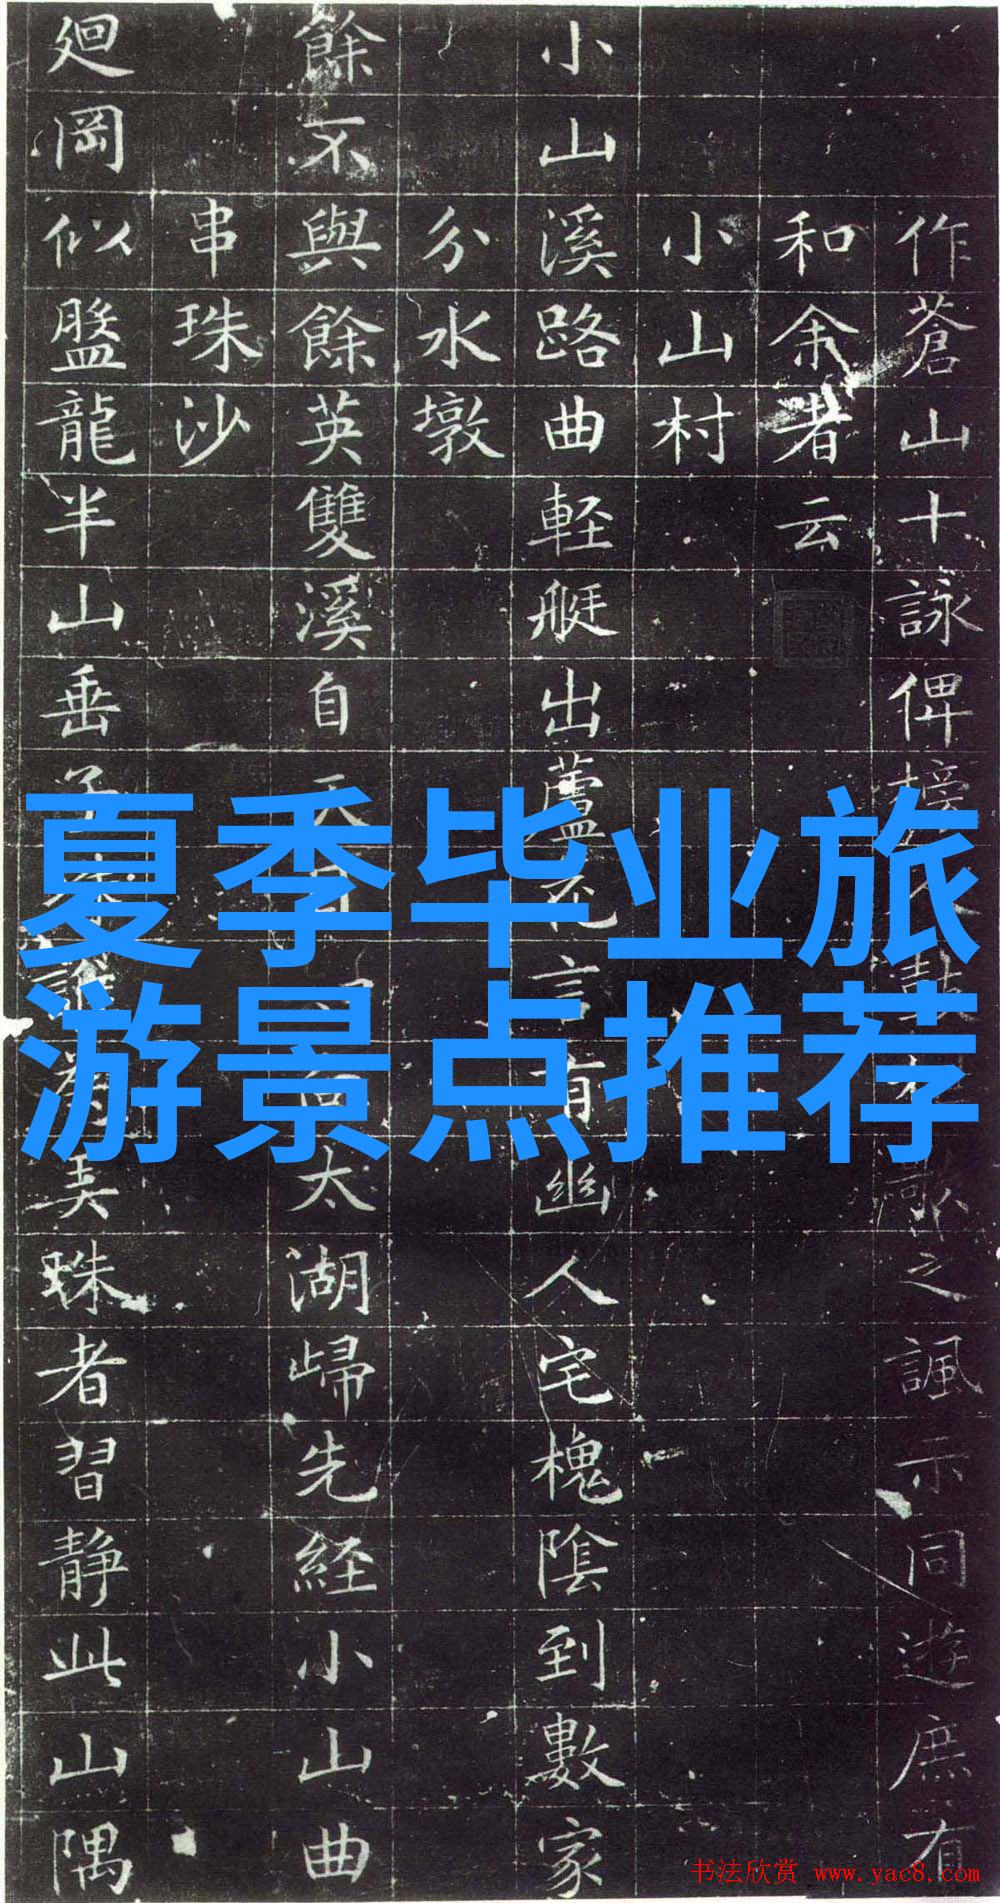 夏季毕业旅
游景点推荐
作蒼山十詠俾榜人鼓歌之諷示同遊庶有
和余者云
小山村
小山溪路曲軽艇出蘆花言有幽人宅槐陰到數家
分水墩
餘不與餘英雙溪自天目太湖歸先経小山曲
串珠沙
廻岡似盤龍半山垂誰為弄珠者習静此山隅
书法欣赏 www.yac8.com